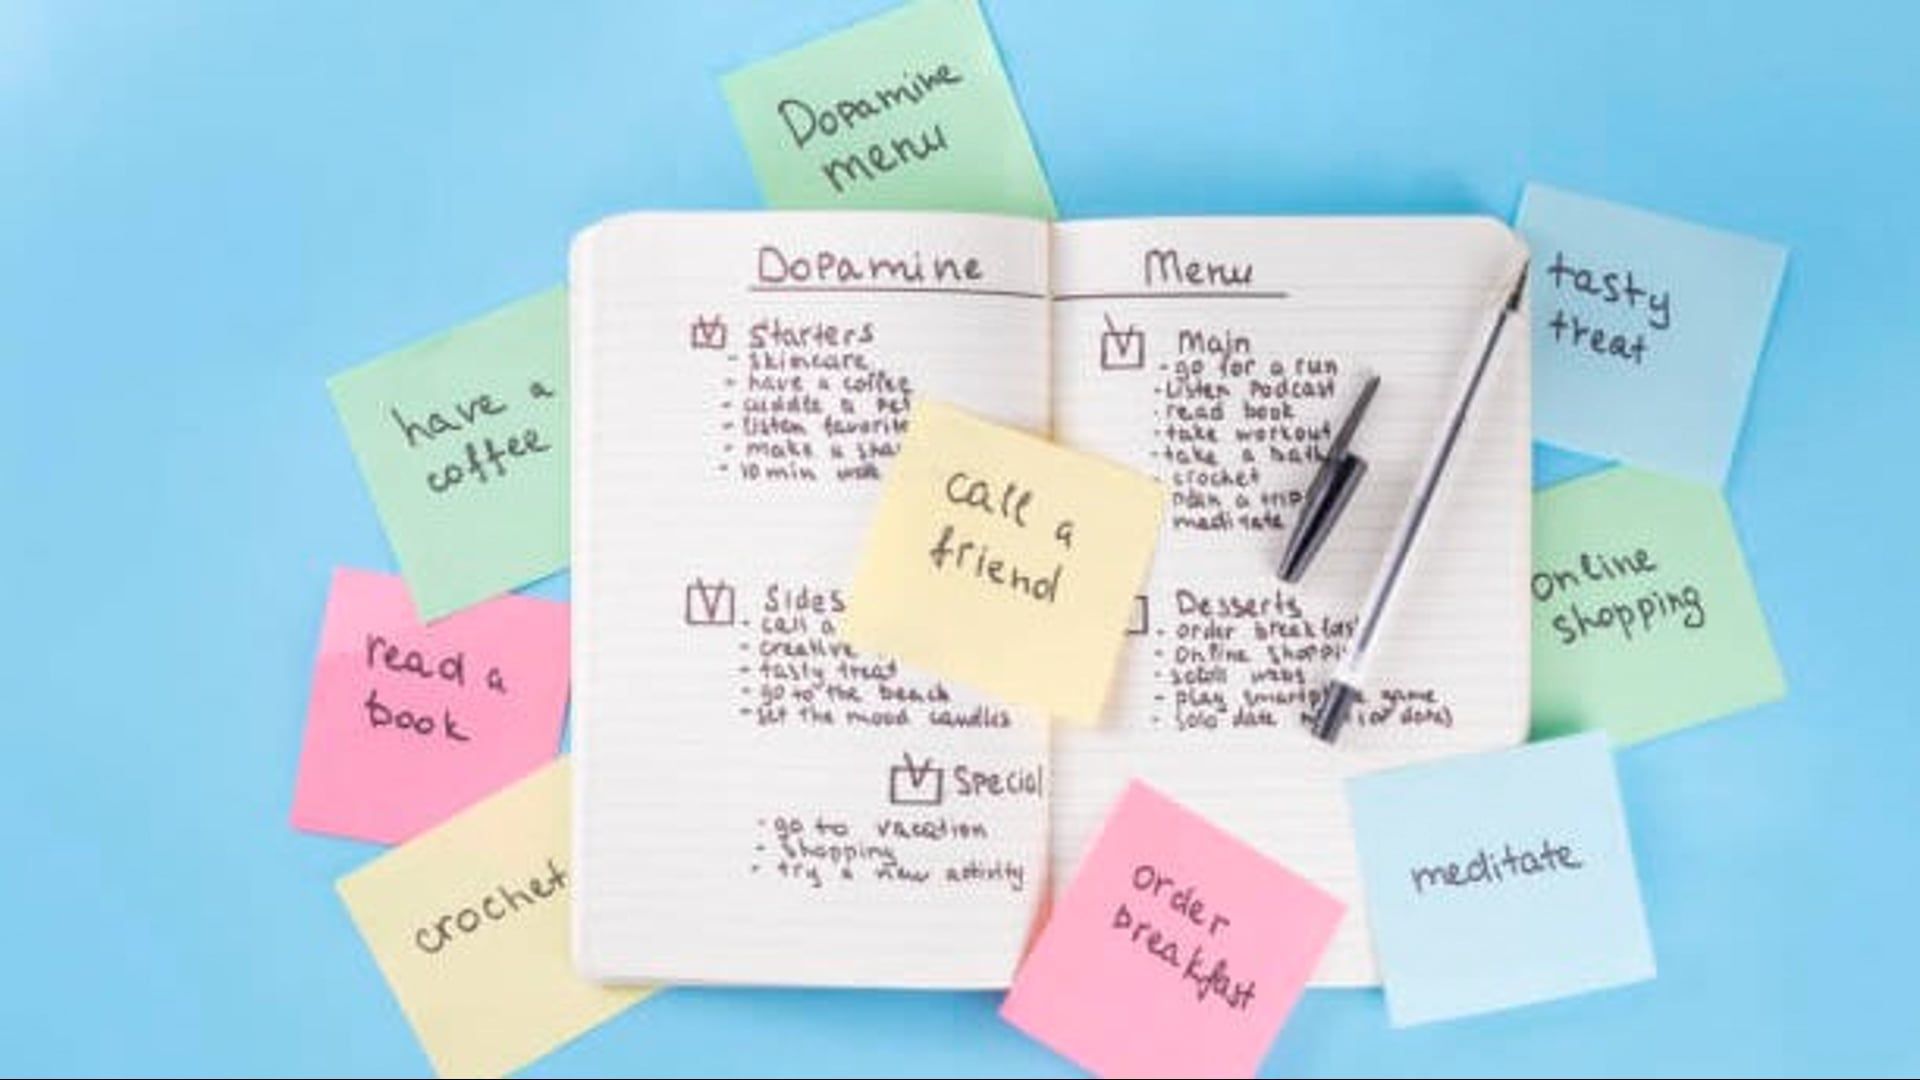 Dopamine
menu
Dopamine Menu
Starters
- skincare
- have a coffee
- cuddle a pet
- listen favorite
- make a
- 10 min walk
Sides
- call a
- creative
- tasty treat
- go to the beach
- set the mood candles
Special
- go to vacation
- shopping
- try a new activity
Main
- go for a run
- Listen Podcast
- read book
- take workout
- take a bath
- crochet
plan a trip
meditate
Desserts
- order breakfast
- online
- scroll
- play game
- solo date
have a
coffee
read a
book
crochet
call a
friend
tasty
treat
online
shopping
meditate
order
breakfast